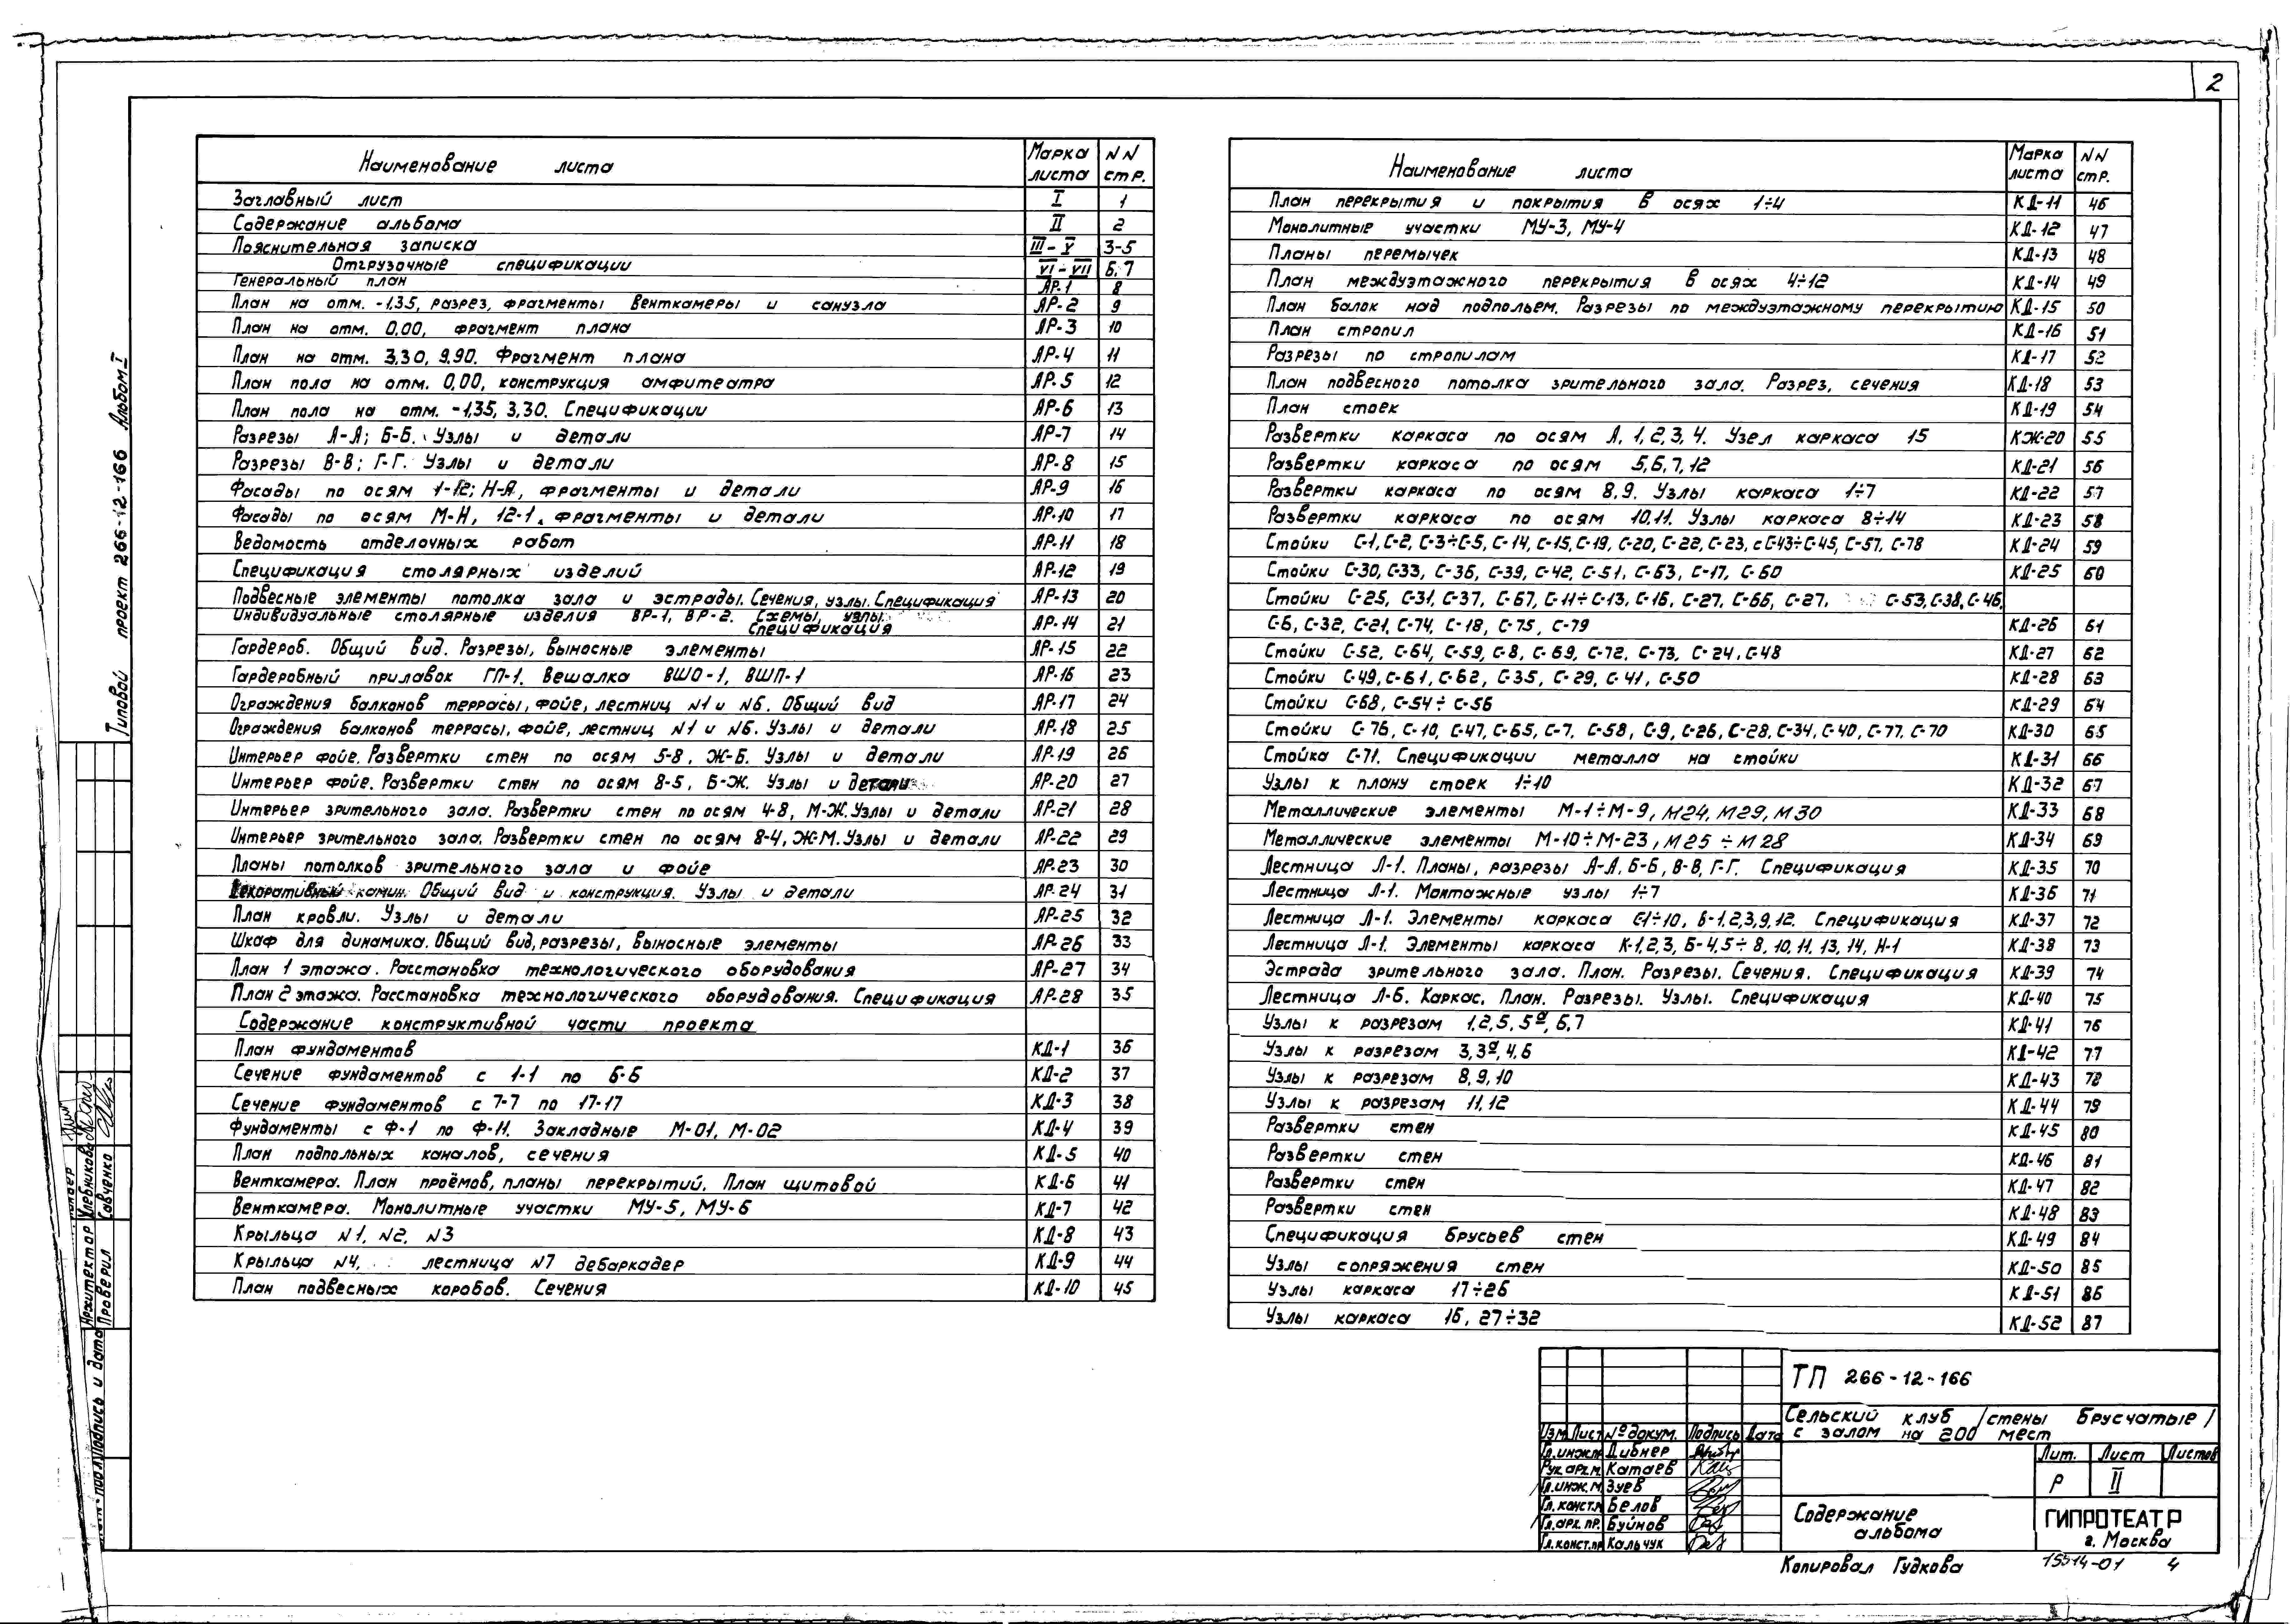 2
Наименование листа Марка листа NN стр.
Заглавный лист I 1
Содержание альбома II 2
Пояснительная записка III-V 3-5
Отгрузочные спецификации VI-VII 6,7
Генеральный план АР-1 8
План на отм. -1.35, разрез, фрагменты венткамеры и санузла АР-2 9
План на отм. 0,00, фрагмент плана АР-3 10
План на отм. 3,30, 9,90. Фрагмент плана АР-4 11
План пола на отм. 0,00, конструкция амфитеатра АР-5 12
План пола на отм. -1,35, 3,30. Спецификации АР-6 13
Разрезы А-А; Б-Б. Узлы и детали АР-7 14
Разрезы В-В; Г-Г. Узлы и детали АР-8 15
Фасады по осям 1-12; Н-А, фрагменты и детали АР-9 16
Фасады по осям М-Н, 12-1, фрагменты и детали АР-10 17
Ведомость отделочных работ АР-11 18
Спецификация столярных изделий АР-12 19
Подвесные элементы потолка зала и эстрады. Сечения, узлы. Спецификация АР-13 20
Индивидуальные столярные изделия ВР-1, ВР-2. Схемы, узлы.
Спецификация АР-14 21
Гардероб. Общий вид. Разрезы, выносные элементы АР-15 22
Гардеробный прилавок ГП-1. Вешалка ВШО-1, ВШП-1 АР-16 23
Ограждения балконов террасы, фойе, лестниц N1 и N6. Общий вид АР-17 24
Ограждения балконов террасы, фойе, лестниц N1 и N6. Узлы и детали АР-18 25
Интерьер фойе. Развертки стен по осям 5-8, Ж-Б. Узлы и детали АР-19 26
Интерьер фойе. Развертки стен по осям 8-5, Б-Ж. Узлы и детали АР-20 27
Интерьер зрительного зала. Развертки стен по осям 4-8, М-Ж. Узлы и детали АР-21 28
Интерьер зрительного зала. Развертки стен по осям 8-4, Ж-М. Узлы и детали АР-22 29
Планы потолков зрительного зала и фойе АР-23 30
Декоративный камин. Общий вид и конструкция. Узлы и детали АР-24 31
План кровли. Узлы и детали АР-25 32
Шкаф для динамика. Общий вид, разрезы, выносные элементы АР-26 33
План 1 этажа. Расстановка технологического оборудования АР-27 34
План 2 этажа. Расстановка технологического оборудования. Спецификация АР-28 35
Содержание конструктивной части проекта
План фундаментов КД-1 36
Сечение фундаментов с 1-1 по 6-6 КД-2 37
Сечение фундаментов с 7-7 по 17-17 КД-3 38
Фундаменты с Ф-1 по Ф-11. Закладные М-01, М-02 КД-4 39
План подпольных каналов, сечения КД-5 40
Венткамера. План проёмов, планы перекрытий. План щитовой КД-6 41
Венткамера. Монолитные участки МУ-5, МУ-6 КД-7 42
Крыльца N1, N2, N3 КД-8 43
Крыльца N4, лестница N7 дебаркадер КД-9 44
План подвесных коробов. Сечения КД-10 45
Наименование листа Марка листа NN стр.
План перекрытия и покрытия в осях 1÷4 КД-11 46
Монолитные участки МУ-3, МУ-4 КД-12 47
Планы перемычек КД-13 48
План междуэтажного перекрытия в осях 4÷12 КД-14 49
План балок над подпольем. Разрезы по междуэтажному перекрытию КД-15 50
План стропил КД-16 51
Разрезы по стропилам КД-17 52
План подвесного потолка зрительного зала. Разрез, сечения КД-18 53
План стоек КД-19 54
Развертки каркаса по осям А, 1, 2, 3, 4. Узел каркаса 15 КЖ-20 55
Развертки каркаса по осям 5,6,7,12 КД-21 56
Развертки каркаса по осям 8,9. Узлы каркаса 1÷7 КД-22 57
Развертки каркаса по осям 10,11. Узлы каркаса 8÷14 КД-23 58
Стойки С-1, С-2, С-3÷С-5, С-14, С-15, С-19, С-20, С-22, С-23, с С-43÷С-45, С-57, С-78 КД-24 59
Стойки С-30, С-33, С-36, С-39, С-42, С-51, С-63, С-17, С-60 КД-25 60
Стойки С-25, С-31, С-37, С-67, С-11÷С-13, С-16, С-27, С-66, С-27, С-53, С-38, С-46,
С-6, С-32, С-21, С-74, С-18, С-75, С-79 КД-26 61
Стойки С-52, С-64, С-59, С-8, С-69, С-72, С-73, С-24, С-48 КД-27 62
Стойки С-49, С-61, С-62, С-35, С-29, С-41, С-50 КД-28 63
Стойки С-68, С-54÷С-56 КД-29 64
Стойки С-76, С-10, С-47, С-65, С-7, С-58, С-9, С-26, С-28, С-34, С-40, С-77, С-70 КД-30 65
Стойка С-71. Спецификации металла на стойки КД-31 66
Узлы к плану стоек 1÷10 КД-32 67
Металлические элементы М-1÷М-9, М24, М29, М30 КД-33 68
Металлические элементы М-10÷М-23, М25÷М28 КД-34 69
Лестница Л-1. Планы, разрезы А-А, Б-Б, В-В, Г-Г. Спецификация КД-35 70
Лестница Л-1. Монтажные узлы 1÷7 КД-36 71
Лестница Л-1. Элементы каркаса С-1÷10, Б-1,2,3,9,12. Спецификация КД-37 72
Лестница Л-1. Элементы каркаса К-1,2,3, Б-4,5÷8, 10, 11, 13, 14, Н-1 КД-38 73
Эстрада зрительного зала. План. Разрезы. Сечения. Спецификация КД-39 74
Лестница Л-6. Каркас, План. Разрезы. Узлы. Спецификация КД-40 75
Узлы к разрезам 1,2,5,5а,6,7 КД-41 76
Узлы к разрезам 3,3а,4,6 КД-42 77
Узлы к разрезам 8,9,10 КД-43 78
Узлы к разрезам 11,12 КД-44 79
Развертки стен КД-45 80
Развертки стен КД-46 81
Развертки стен КД-47 82
Развертки стен КД-48 83
Спецификация брусьев стен КД-49 84
Узлы сопряжения стен КД-50 85
Узлы каркаса 17÷26 КД-51 86
Узлы каркаса 16, 27÷32 КД-52 87
Типовой проект 266-12-166 Альбом I
Архитектор Хлебникова
Проверил Савченко
Подпись и дата
ТП 266-12-166
Сельский клуб /стены брусчатые/
с залом на 200 мест
Изм Лист № докум. Подпись Дата
Гл.инж.пр Дибнер
Рук.арх.м. Катаев
Гл.инж.м. Зуев
Гл.конст.м Белов
Гл.арх.пр. Буйнов
Гл.конст.пр Кальчук
Лит. Лист Листов
Р II
Содержание
альбома
ГИПРОТЕАТР
г. Москва
Копировал Гудкова
15514-01 4